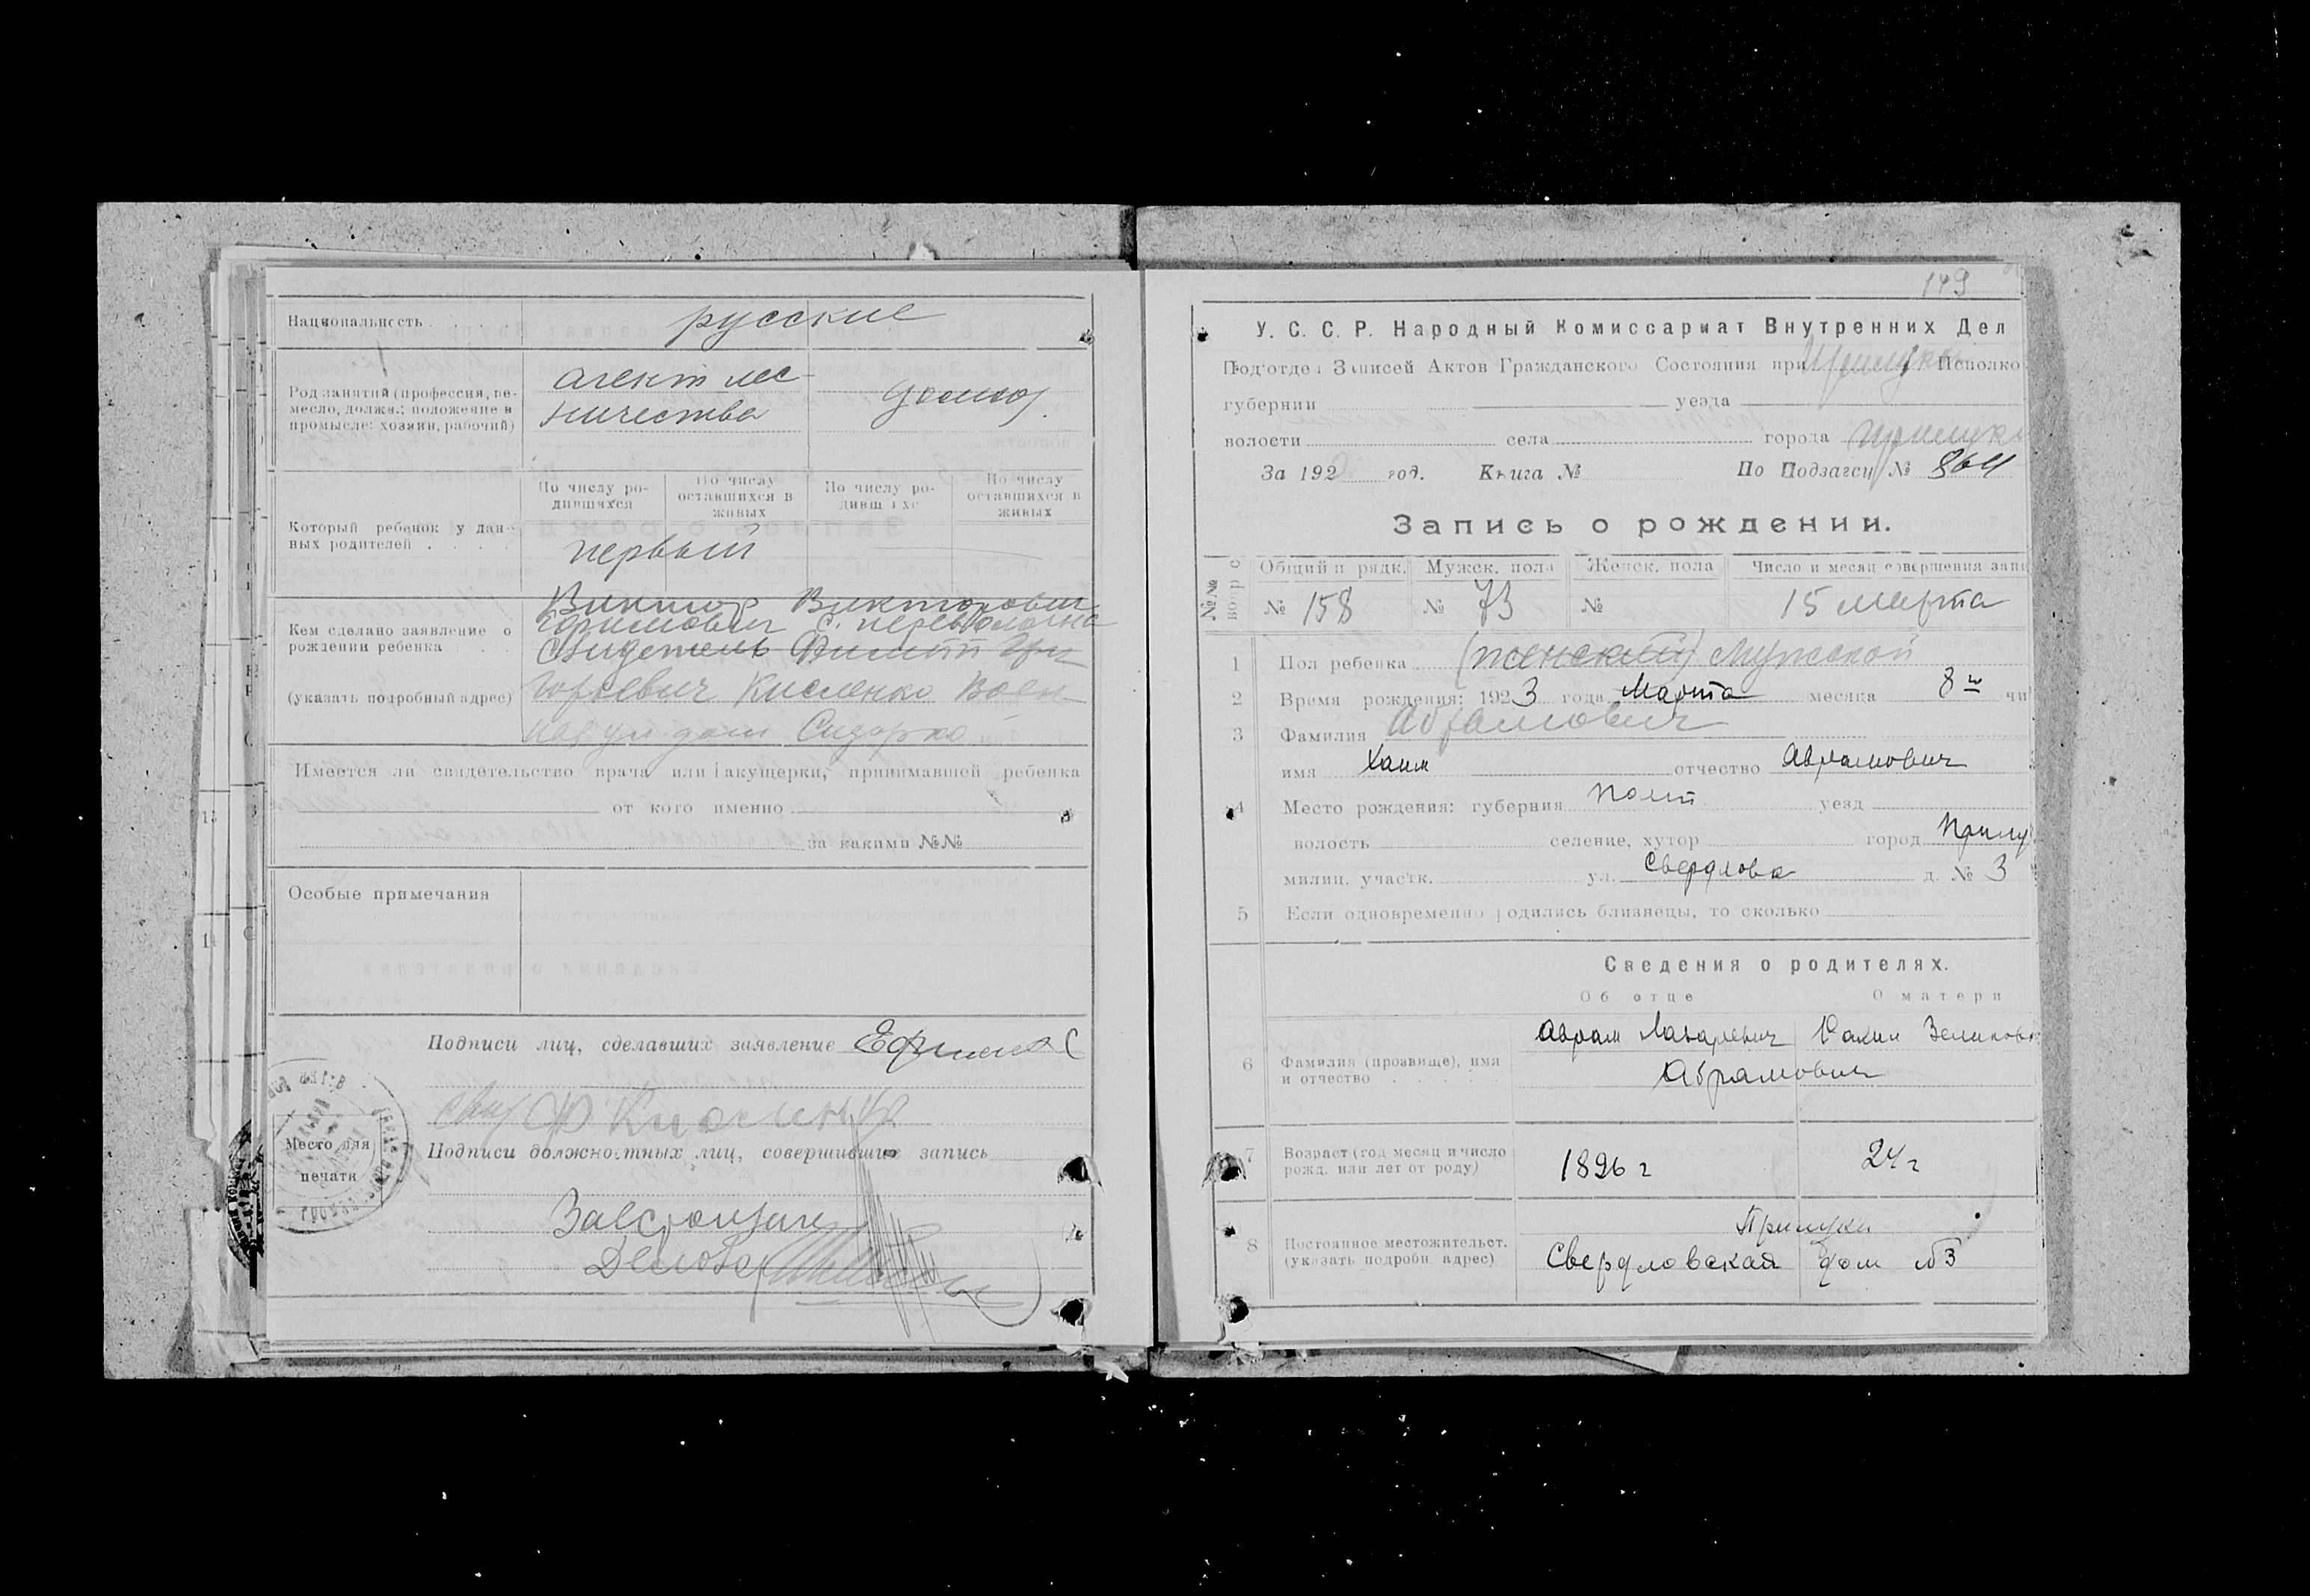 Национальность
русские
Род занятий (профессия, ре-
месло, должн.; положение в
промысле: хозяин, рабочий)
агент лес-
ничества
домхоз.
Который ребенок у дан-
ных родителей . . . .
По числу ро-
дившихся
По числу
оставшихся в
живых
По числу ро-
дившихс
По числу
оставшихся в
живых
первый
Кем сделано заявление о
рождении ребенка . . .
(указать подробный адрес)
Виктор Викторович
Ефимович с. переволочна
Свидетель Филипп Гри
горьевич Кисленко Воен-
ная ул. дом Сидорко
Имеется ли свидетельство врача или акущерки, принимавшей ребенка
от кого именно
за какими №№
Особые примечания
Подписи лиц, сделавших заявление
Место для
печати
Подписи должностных лиц, совершивших запись
149
У. С. С. Р. Народный Комиссариат Внутренних Дел
Подотдел Записей Актов Гражданского Состояния при Прилуки Исполко
губернии уезда
волости села города Прилуки
За 192 год. Книга № По Подзагсу № 864
Запись о рождении.
№№
вопрос
Общий п рядк. Мужск. пола Женск. пола Число и месяц совершения запи
№ 158 № 73 № 15 Марта
1 Пол ребенка (женский) Мужской
2 Время рождения: 1923 года Марта месяца 8го чи
3 Фамилия Абрамович
имя Хаим отчество Абрамович
4 Место рождения: губерния Полт уезд
волость селение, хутор город Прилу
милиц. участк. ул. Свердлова д. № 3
5 Если одновременно родились близнецы, то сколько
Сведения о родителях.
Об отце О матери
6 Фамилия (прозвище), имя
и отчество . . . . .
Абрам Лазаревич Рахил Зеликовн
Абрамович
7 Возраст (год месяц и число
рожд. или лет от роду)
1896 г 24 г
8 Постоянное местожительст.
(указать подробн. адрес)
Прилуки
Свердловская дом №3